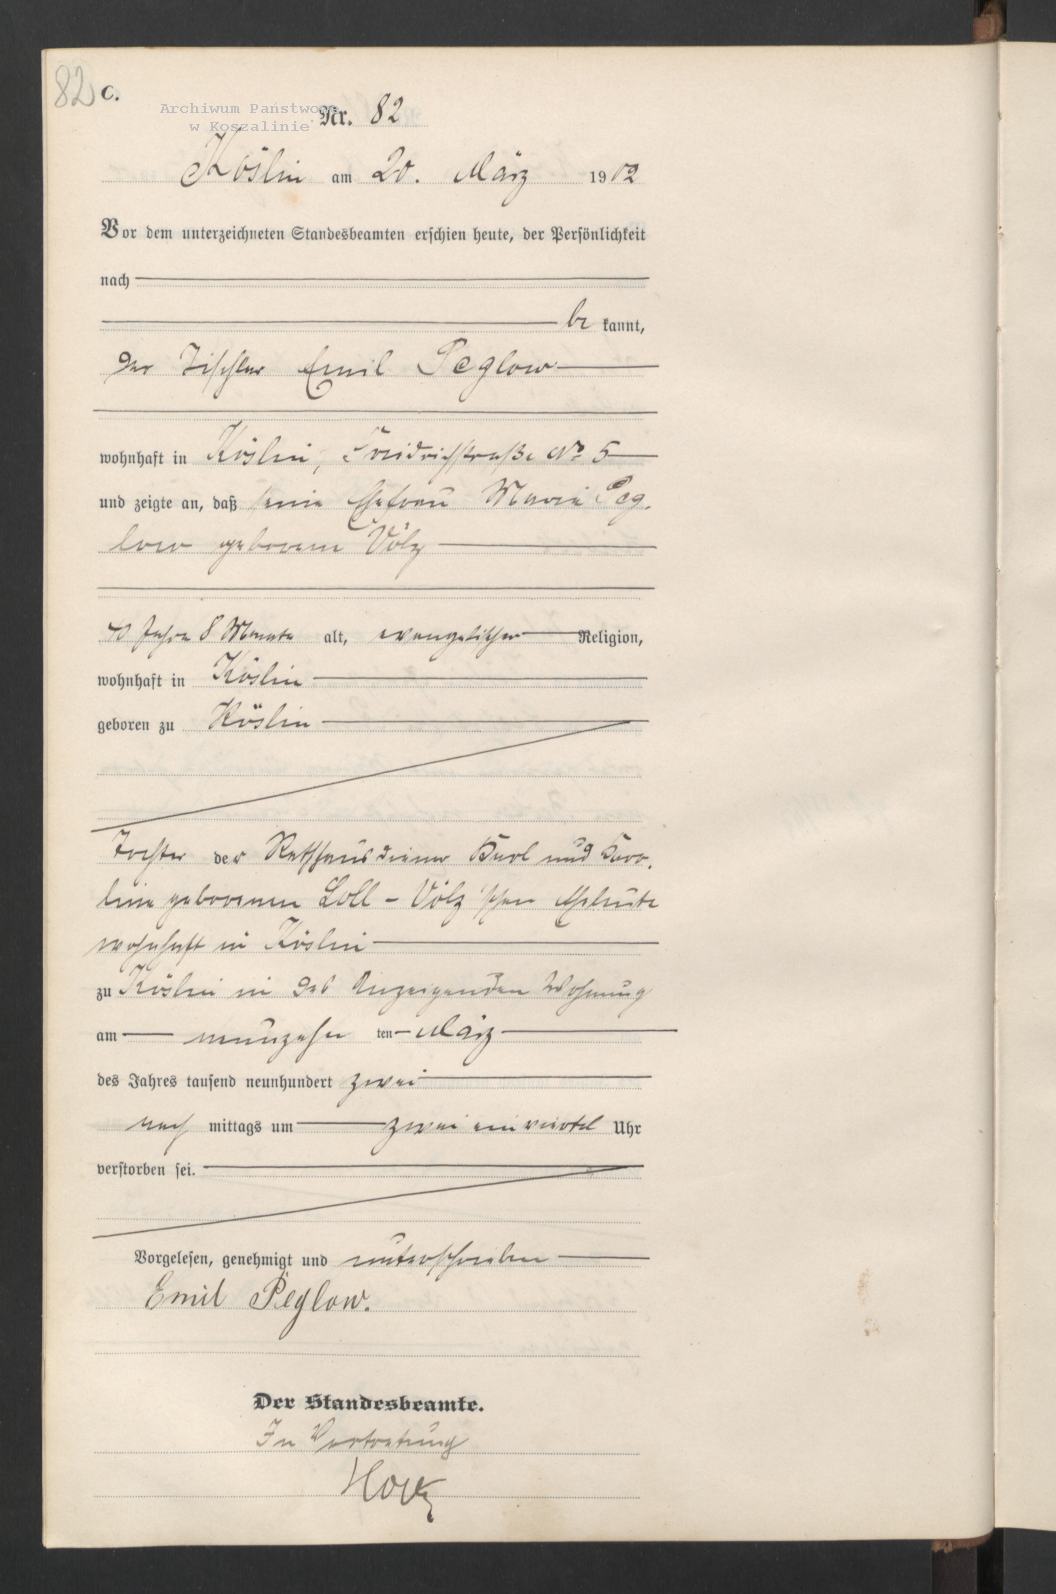 82 C.
Archiwum Państwowe
w Koszalinie
Nr. 82
Köslin am 20. März 1902
Vor dem unterzeichneten Standesbeamten erschien heute, der Persönlichkeit
nach
be kannt,
der Tischler Emil Peglow
wohnhaft in Köslin, Friedrichstraße No 5
und zeigte an, daß seine Ehefrau Marie Peg-
low geborene Völz
40 Jahre 8 Monate alt, evangelischer Religion,
wohnhaft in Köslin
geboren zu Köslin
Tochter der Rathhausdiener Karl und Karo-
line geborenen Loll - Völz'schen Eheleute
wohnhaft in Köslin
zu Köslin in des Anzeigenden Wohnung
am neunzehn ten März
des Jahres tausend neunhundert zwei
nach mittags um zwei ein viertel Uhr
verstorben sei.
Vorgelesen, genehmigt und unterschrieben
Emil Peglow.
Der Standesbeamte.
In Vertretung